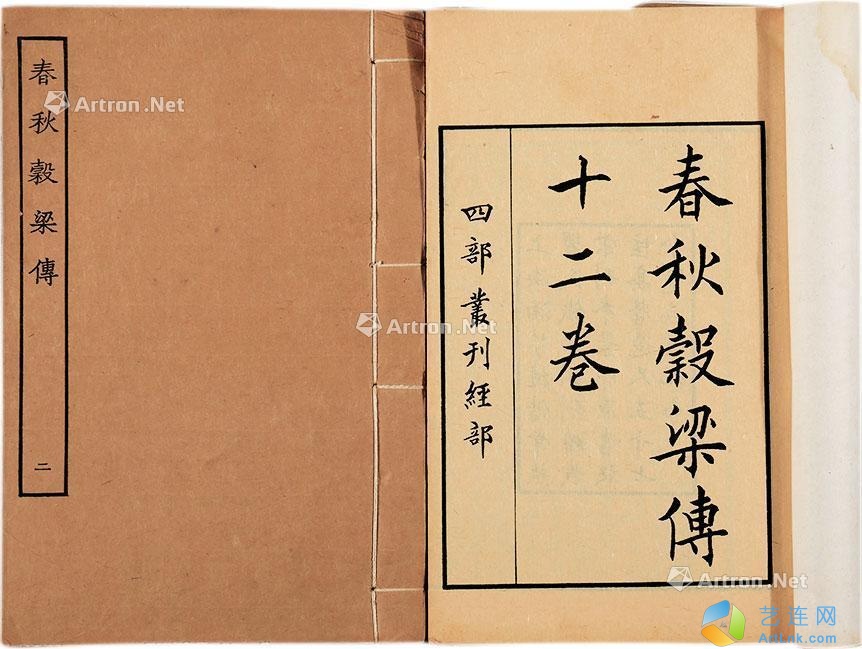 春秋穀梁傳
二
春秋穀梁傳
十二卷
四部叢刊經部
Artron.Net
Artron.Net
Artron.Net
艺连网
ArtLnk.com